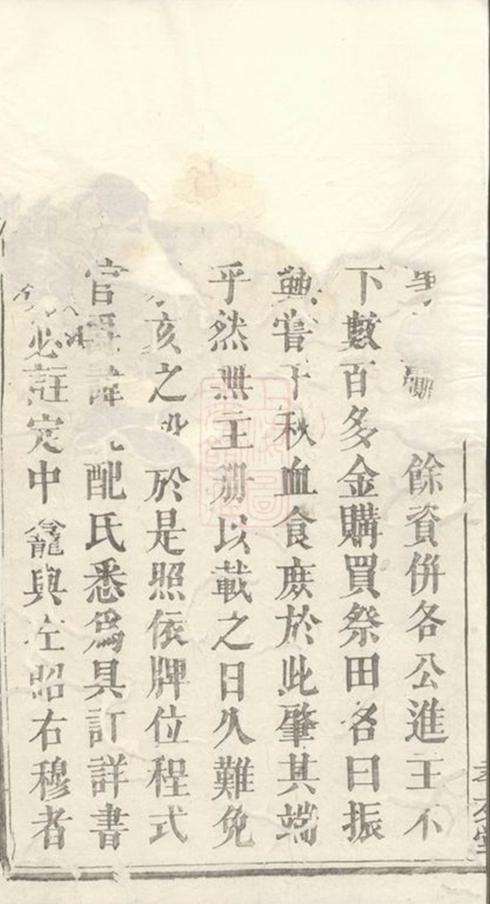 餘資併各公進主不
下數百多金購買祭田名曰振
興嘗千秋血食庶於此肇其端
乎然無主冊以載之日久難免
亥之 於是照依牌位程式
官爵諱 配氏悉為具訂詳書
必註定中龕與左昭右穆者